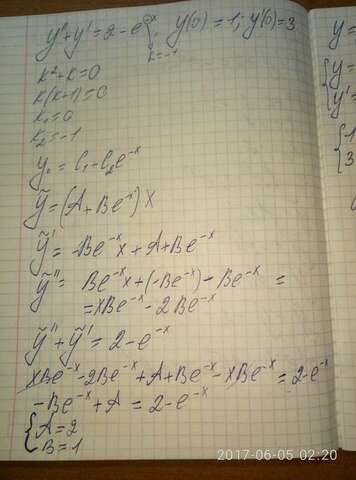 y''+y'=2-e^{-x}; y(0)=1; y'(0)=3
k=-1
k²+k=0
k(k+1)=0
k₁=0
k₂=-1
y₀=C₁-C₂e^{-x}
ỹ=(A+Be^{-x})x
ỹ'=-Be^{-x}x+A+Be^{-x}
ỹ''=Be^{-x}x+(-Be^{-x})-Be^{-x}=
=xBe^{-x}-2Be^{-x}
ỹ''+ỹ'=2-e^{-x}
xBe^{-x}-2Be^{-x}+A+Be^{-x}-xBe^{-x}=2-e^{-x}
-Be^{-x}+A=2-e^{-x}
{A=2
B=1
y=
{y=
y'=
{1
3
2017-06-05 02:20